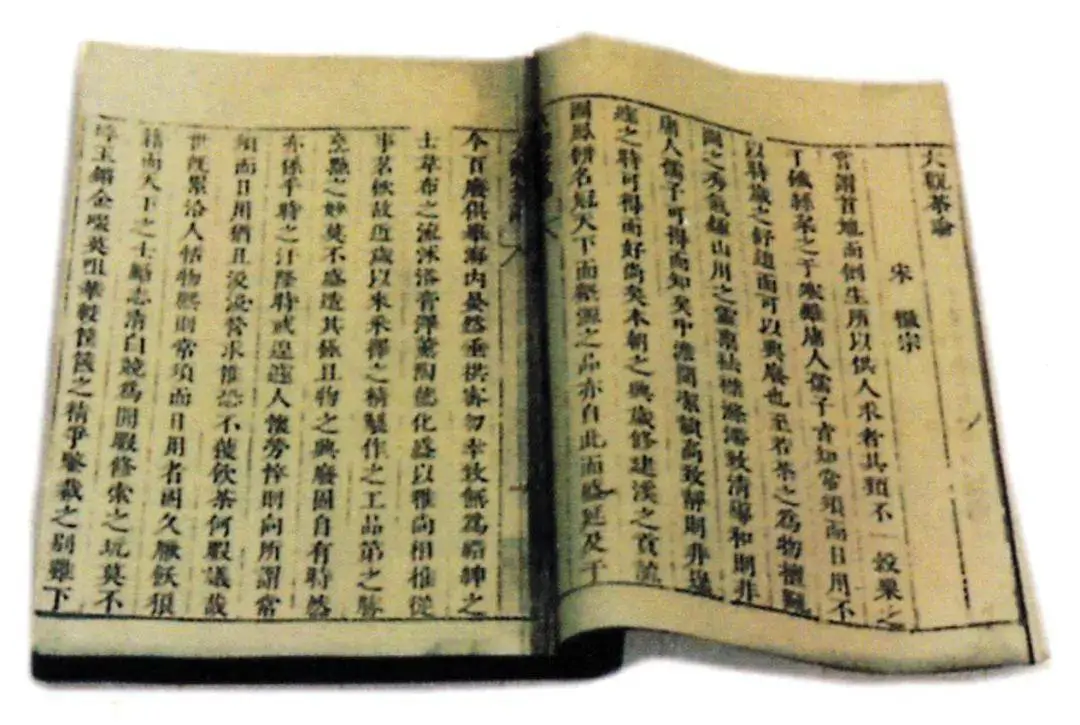 大觀茶論
宋 徽宗
嘗謂首地而倒生所以供人求者其類不一穀粟之
于饑絲枲之于寒雖庸人孺子皆知常須而日用不
以時歲之舒迫而可以興廢也至若茶之為物擅甌
閩之秀氣鍾山川之靈稟祛襟滌滯致清導和則非
庸人孺子可得而知矣中澹閒潔韻高致靜則非遑
遽之時可得而好尚矣本朝之興歲修建溪之貢龍
團鳳餅名冠天下而壑源之品亦自此而盛延及于
今百廢俱舉海内晏然垂拱密勿幸致無為縉紳之
士韋布之流沐浴膏澤薰陶德化盛以雅尚相推從
事茗飲故近歲以來采擇之精製作之工品第之勝
烹點之妙莫不盛造其極且物之興廢固自有時然
亦係乎時之汙隆時或遑遽人懷勞悴則向所謂常
須而日用猶且汲汲營求惟恐不獲飲茶何暇議哉
世既累洽人恬物熙則常須而日用者固久厭飫狼
籍而天下之士勵志清白競為閒暇修索之玩莫不
碎玉鏘金啜英咀華較筐篋之精爭鑒裁之别雖下